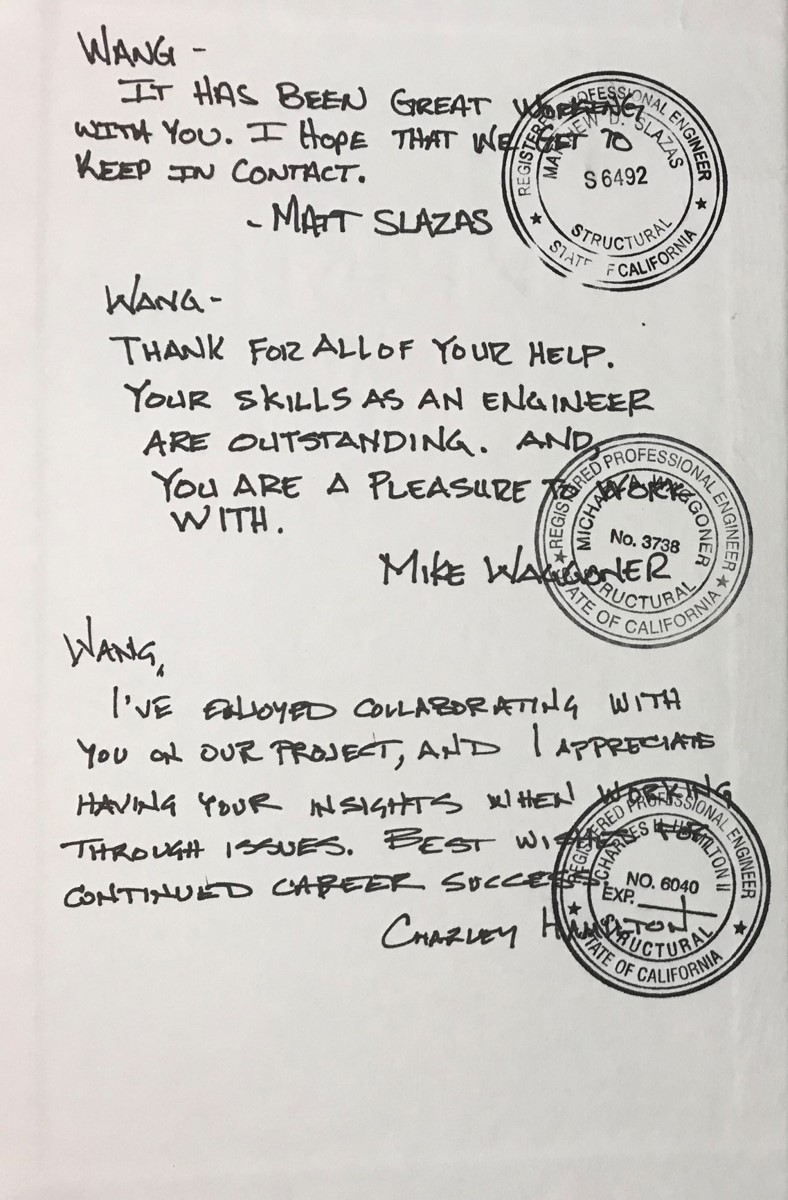 WANG -
IT HAS BEEN GREAT WORKING
WITH YOU. I HOPE THAT WE GET TO
KEEP IN CONTACT.
- MATT SLAZAS
REGISTERED PROFESSIONAL ENGINEER
MATTHEW D. SLAZAS
S 6492
STRUCTURAL
STATE OF CALIFORNIA
WANG -
THANK FOR ALL OF YOUR HELP.
YOUR SKILLS AS AN ENGINEER
ARE OUTSTANDING. AND,
YOU ARE A PLEASURE TO WORK
WITH.
MIKE WAGGONER
REGISTERED PROFESSIONAL ENGINEER
MICHAEL WAGGONER
No. 3738
STRUCTURAL
STATE OF CALIFORNIA
WANG,
I'VE ENJOYED COLLABORATING WITH
YOU ON OUR PROJECT, AND I APPRECIATE
HAVING YOUR INSIGHTS WHEN WORKING
THROUGH ISSUES. BEST WISHES FOR
CONTINUED CAREER SUCCESS,
CHARLEY HAMILTON
REGISTERED PROFESSIONAL ENGINEER
CHARLES HAMILTON II
NO. 6040
EXP.
STRUCTURAL
STATE OF CALIFORNIA